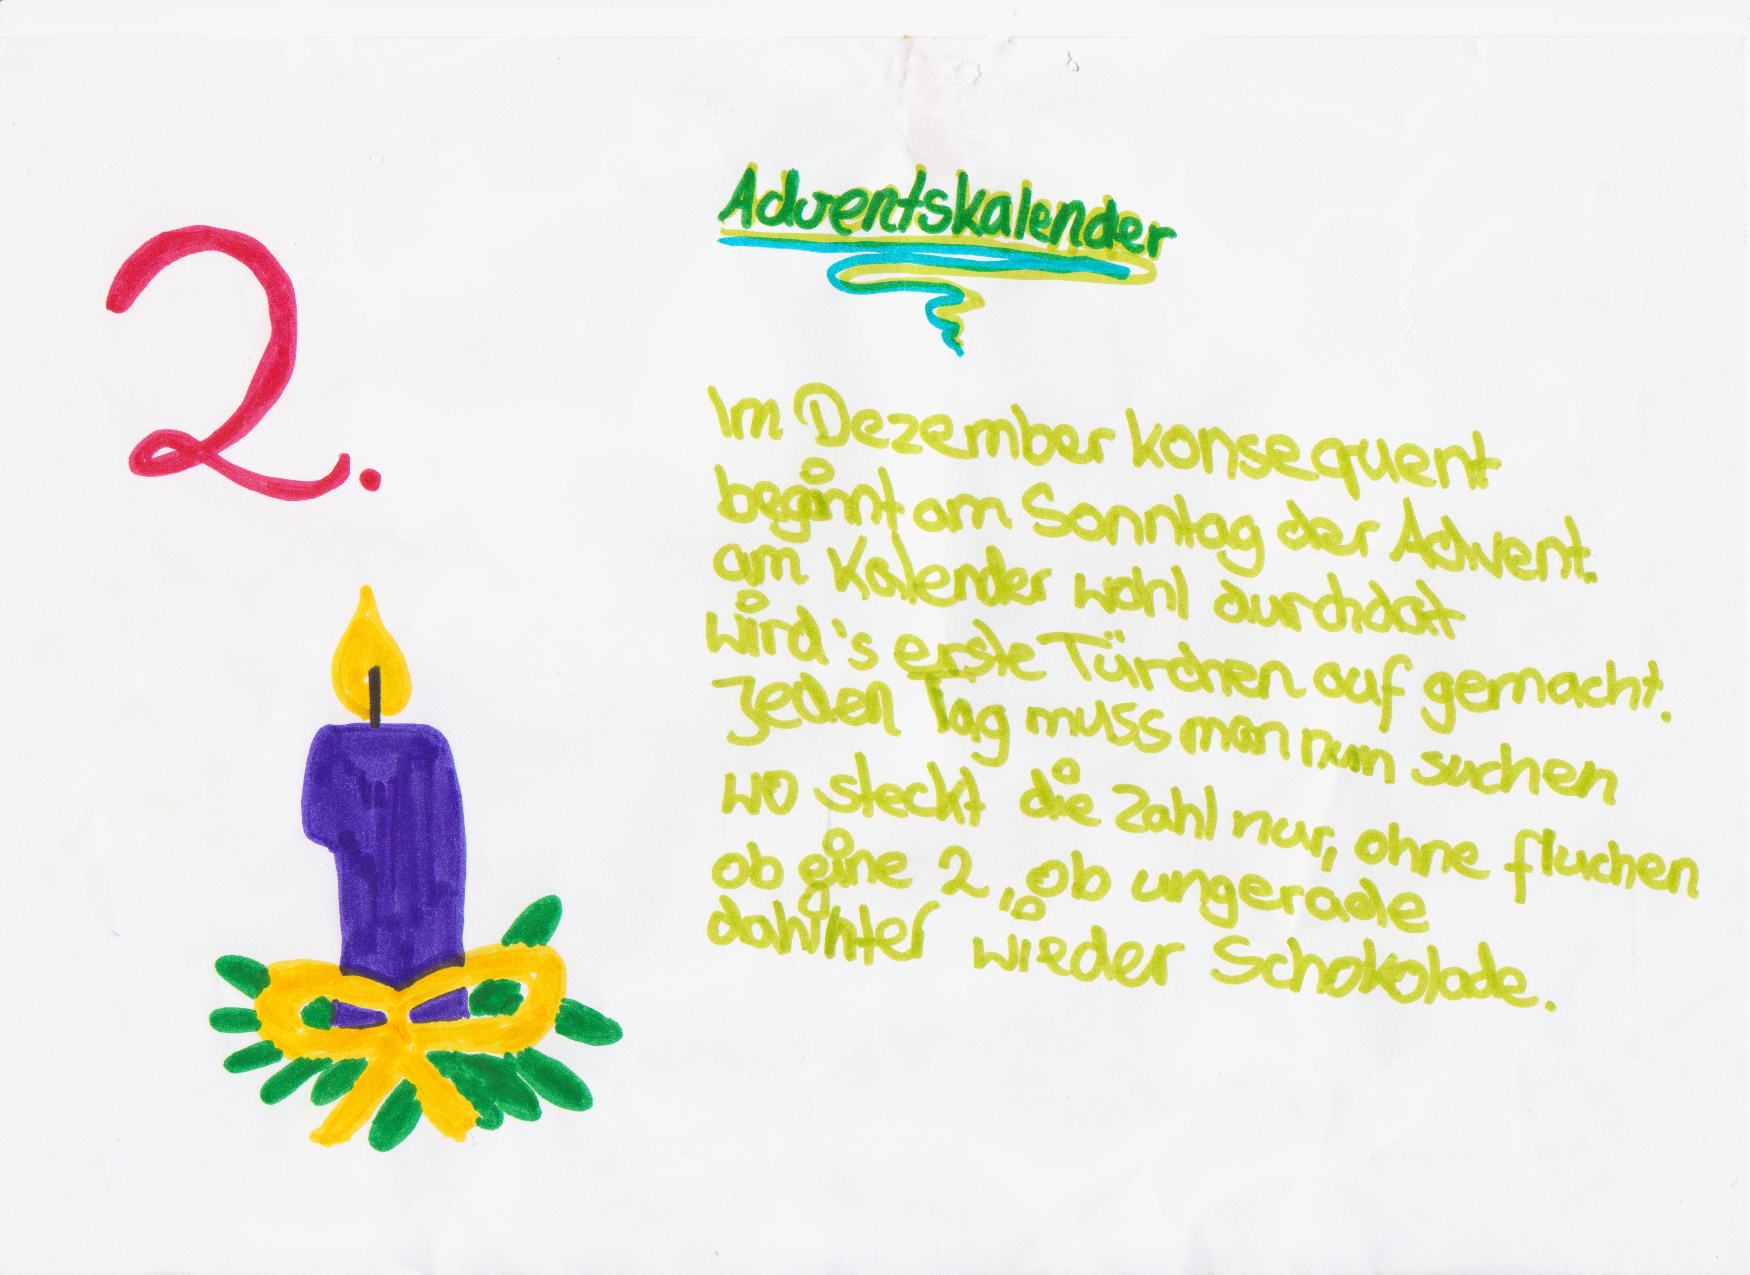 2.
Adventskalender
Im Dezember konsequent
beginnt am Sonntag der Advent.
am Kalender wohl durchdat
wird's erste Türchen auf gemacht.
Jeden Tag muss man nun suchen
wo steckt die Zahl nur, ohne fluchen
ob eine 2, ob ungerade
dahinter wieder Schokolade.